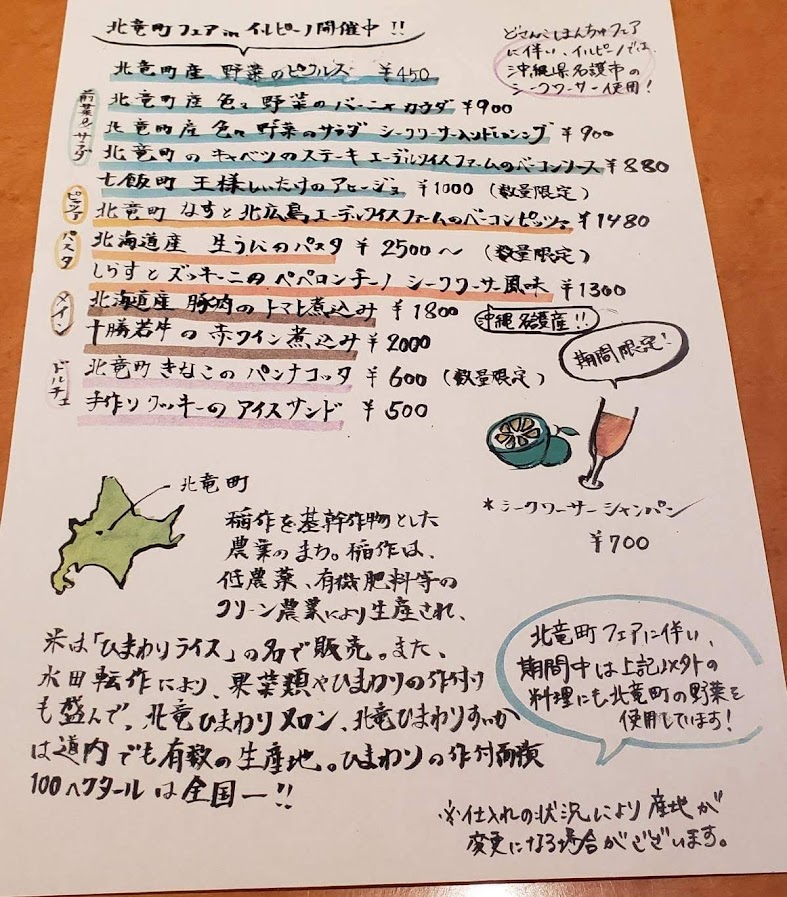 北竜町フェア in イルピーノ開催中!!
どさんこしまんちゅフェア
に伴い、イルピーノでは、
沖縄県名護市の
シークワーサー使用!
前菜&サラダ
北竜町産 野菜のピクルス ¥450
北竜町産 色々野菜のバーニャカウダ ¥900
北竜町産 色々野菜のサラダ シークワーサーハンドレッシング ¥900
北竜町のキャベツのステーキ エーデルワイスファームのベーコンソース ¥880
七飯町 王様しいたけのアヒージョ ¥1000 (数量限定)
ピッツァ
北竜町 なすと北広島エーデルワイスファームのベーコンピッツァ ¥1480
パスタ
北海道産 生うにのパスタ ¥2500〜 (数量限定)
しらすとズッキーニのペペロンチーノ シークワーサー風味 ¥1300
メイン
北海道産 豚肉のトマト煮込み ¥1800
沖縄名護産!!
十勝若牛の赤ワイン煮込み ¥2000
期間限定!
ドルチェ
北竜町きなこのパンナコッタ ¥600 (数量限定)
手作りクッキーのアイスサンド ¥500
*シークワーサーシャンパン
¥700
北竜町
稲作を基幹作物とした
農業のまち。稲作は、
低農薬、有機肥料等の
クリーン農業により生産され、
米は「ひまわりライス」の名で販売。また、
水田転作により、果菜類やひまわりの作付け
も盛んで、北竜ひまわりメロン、北竜ひまわりすいか
は道内でも有数の生産地。ひまわりの作付面積
100ヘクタールは全国一!!
北竜町フェアに伴い、
期間中は上記以外の
料理にも北竜町の野菜を
使用しています!
※仕入れの状況により産地が
変更になる場合がございます。